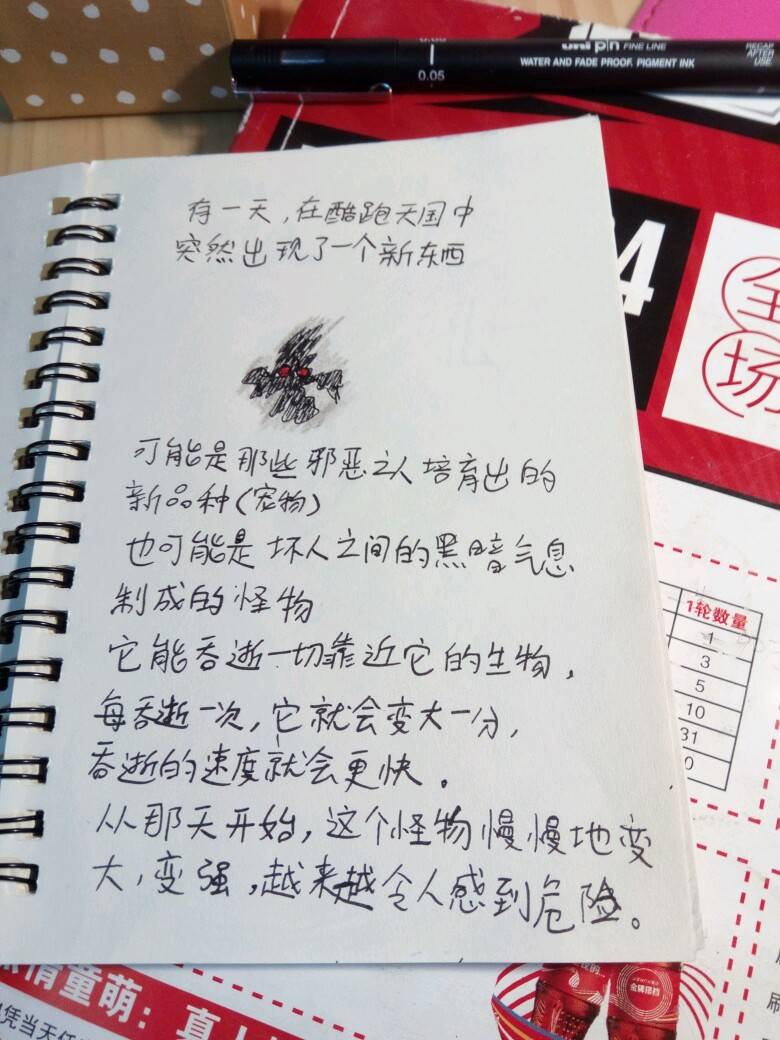 uni pin FINE LINE
0.05
WATER AND FADE PROOF, PIGMENT INK
RECAP
AFTER
USE
有一天，在酷跑天国中
突然出现了一个新东西
4
全
场
可能是那些邪恶之人培育出的
新品种（宠物）
也可能是坏人之间的黑暗气息
制成的怪物
它能吞逝一切靠近它的生物，
每吞逝一次，它就会变大一分，
吞逝的速度就会更快。
从那天开始，这个怪物慢慢地变
大，变强，越来越令人感到危险。
1轮数量
1
3
5
10
31
0
情童萌：真
凭当天任
刷